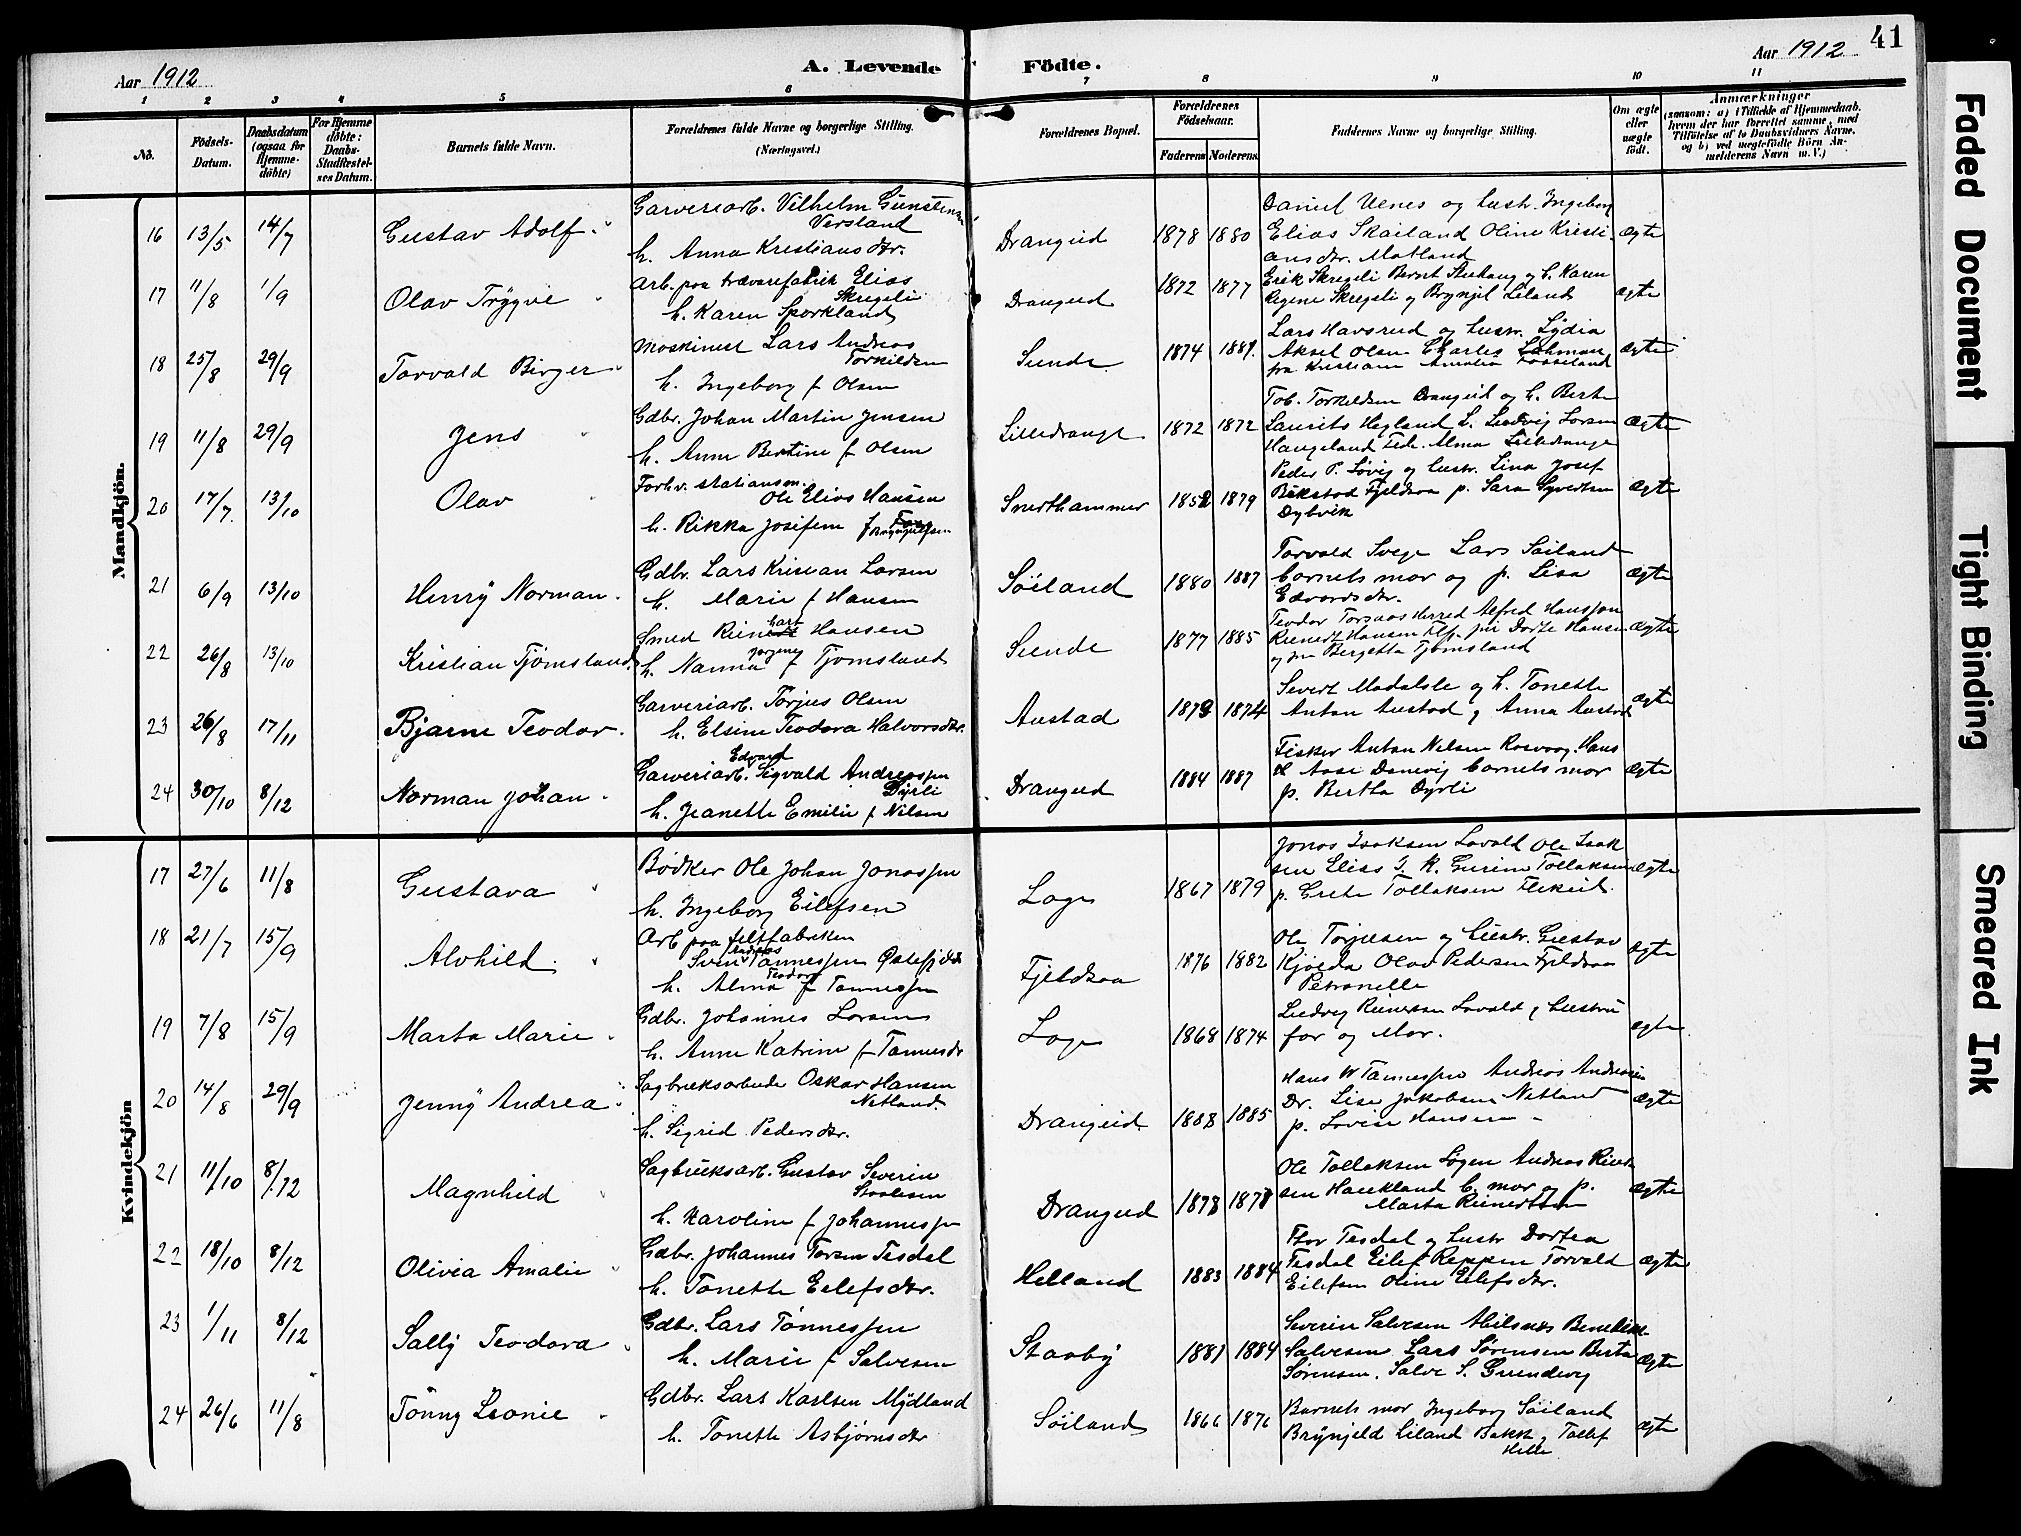 Aar 1912
A. Levende Födte.
Aar 1912
41
1 2 3 4 5 6 7 8 9 10 11
No.
Födsels-Datum.
Daabsdatum (ogsaa for Hjemmedöbte)
For Hjemmedöbte: Daabs-Stadfæstelses Datum.
Barnets fulde Navn.
Forældrenes fulde Navne og borgerlige Stilling.
(Næringsvei.)
Forældrenes Bopæl.
Forældrenes Födselsaar.
Faderens Moderens
Faddernes Navne og borgerlige Stilling.
Om ægte eller uægte födt.
Anmærkninger
(saasom: a) i Tilfælde af Hjemmedaab, hvem der har forrettet samme, med Tilföielse af to Daabsvidners Navne, og b) ved uægtefödte Börn Anmelderens Navn m. V.)
Mandkjön.
16 13/5 14/7 Gustav Adolf
Garveriarb. Vilhelm Gunstensen
Versland
h. Anna Kristiansdtr.
Drangeid 1878 1880
Daniel Uenes og hustr. Ingeborg
Elias Skailand Oline Kristi-
ansdtr. Matland
Ægte
17 11/8 1/9 Olav Trygve
Arb. paa trævarefabrik Elias
Skregeli
h. Karen Sporkland
Drangeid 1872 1877
Erik Skregeli Bernt Stuhaug og h. Karen
Regene Skregeli og Brynjil Liland
Ægte
18 25/8 29/9 Torvald Birger
Maskinist Lars Andreas
Torkildsen
h. Ingeborg f Olsen
Sunde 1874 1881.
Lars Havsrud og hustr. Lydia
Aksel Olsen Charles Lohman
fra Kristiania Amalia Fosseland
Ægte
19 11/8 29/9 Jens
Gdbr. Johan Martin Jensen
h. Anne Bertine f Olsen
Lilledrange 1872 1872
Tob. Torkildsen Drangeid og h. Berte
Laurits Hegland L. Ludvig Larsen
Haugeland Fedr. Alma Lilledrange
Ægte
20 17/7. 13/10 Olav
Forhv. stationsm.
Ole Elias Hansen
h. Rikka Josefine f
Snerthammer 1852 1879
Peder P. Løvig og hustr. Lina Josef
Bekstad Fjeldsaa p. Sara Syvertsen
Dybvik
Ægte
21 6/9 13/10 Henry Norman.
Gdbr. Lars Kristian Larsen
h. Marie f Hansen
Søiland 1880 1887
Torvald Svege Lars Søiland
barnets mor og p. Lisa
Edvardsdtr.
Ægte
22 26/8 13/10 Kristian Tjømsland
Smed Reinert Hansen
h. Nanna Jørgine f Tjomsland
Sunde 1877 1885
Teodor Torsnas Herred Alfred Hanssen
Reinert Hansen Flp. pik Dorte Hansen
og Bergetta Tjomsland
Ægte
23 26/8 17/11 Bjarne Teodor.
Garveriarb. Torjus Olsen
h. Elsine Teodora Halvorsdtr.
Austad 1873 1874
Severt Modalsle og h. Tonette
Anton Austad og Anna Austad
Ægte
24 30/10 8/12 Norman Johan
Edvard
Garveriarb. Sigvald Andreassen
Dyrli
h. Jeanette Emilie f Nilsen
Drangeid 1884 1887
Fisker Anton Nilsen Rosvaag. Hans
H Aase Danevig barnets mor
p. Bertha Dyrli
Ægte
Kvindekjön
17 27/6 11/8 Gustava
Bødker Ole Johan Jonassen
h. Ingeborg Eilefsen
Loge 1867 1879
Jonas Isaksen Lovald Ole Isak-
sen Eliss I. K. Gurine Tollaksen
p. Grete Tollaksen Flikeid.
Ægte
18 21/7 15/9 Alvhild.
Arb paa filtfabriken
Andreas
Sven Tønnessen Østefjeld
Teodora
h. Alma f Tønnessen
Fjeldsaa 1876 1882
Ole Torjussen og hustr. Gustav
Kjøida Olav Pedersen Fjeldsaa
Petronelle
Ægte
19 7/8 15/9 Marta Marie
Gdbr. Johannes Larsen
h. Anne Katrine f Tønnesdtr
Loge 1868 1874
Ludvig Reinertsen Lovald og hustru
far og Mor.
Ægte.
20 14/8 29/9 Jenny Andrea
Sagbruksarbeide Oskar Hansen
Netland.
h. Sigrid Pedersdtr.
Drangeid. 1888 1885
Hans W Tønnessen Andreas Andreasen
Dr. Lise Jakobsen Netland
p. Lovise Hansen
Ægte
21 11/10 8/12 Magnhild
Sagbruksarb. Gustav Severin
Staalesen
h. Karoline f Johannessen
Drangeid 1878 1878
Ole Tollaksen Logen Andreas Reinert-
sen Haukland b. mor og p.
Marta Reinertsen
Ægte
22 18/10 8/12 Olivia Amalie
Gdbr. Johannes Torsen Tesdal
h. Tonette Eilefsdtr.
Helland 1883 1884
Thor Tesdal og hustr Dortea
Tesdal Eilef Reppen Torvald
Eilefsen Oline Eilefsdtr.
Ægte
23 1/11 8/12 Sally Teodora
Gdbr. Lars Tønnessen
h. Marie f Salvesen
Staaby 1881 1884
Severin Salvesen Abilsnes Benedikte
Salvesen Lars Sørensen Berta
Sørensen. Salve S. Grundevig
Ægte
24 26/6 11/8 Tönny Leonie
Gdbr. Lars Karlsen Mydland
h. Tonette Asbjørnsdtr
Søiland 1866 1876
Barnets mor Ingeborg Søiland
Brynjeld Liland Bakk og Tollef
Helle
Ægte
Faded Document
Tight Binding
Smeared Ink